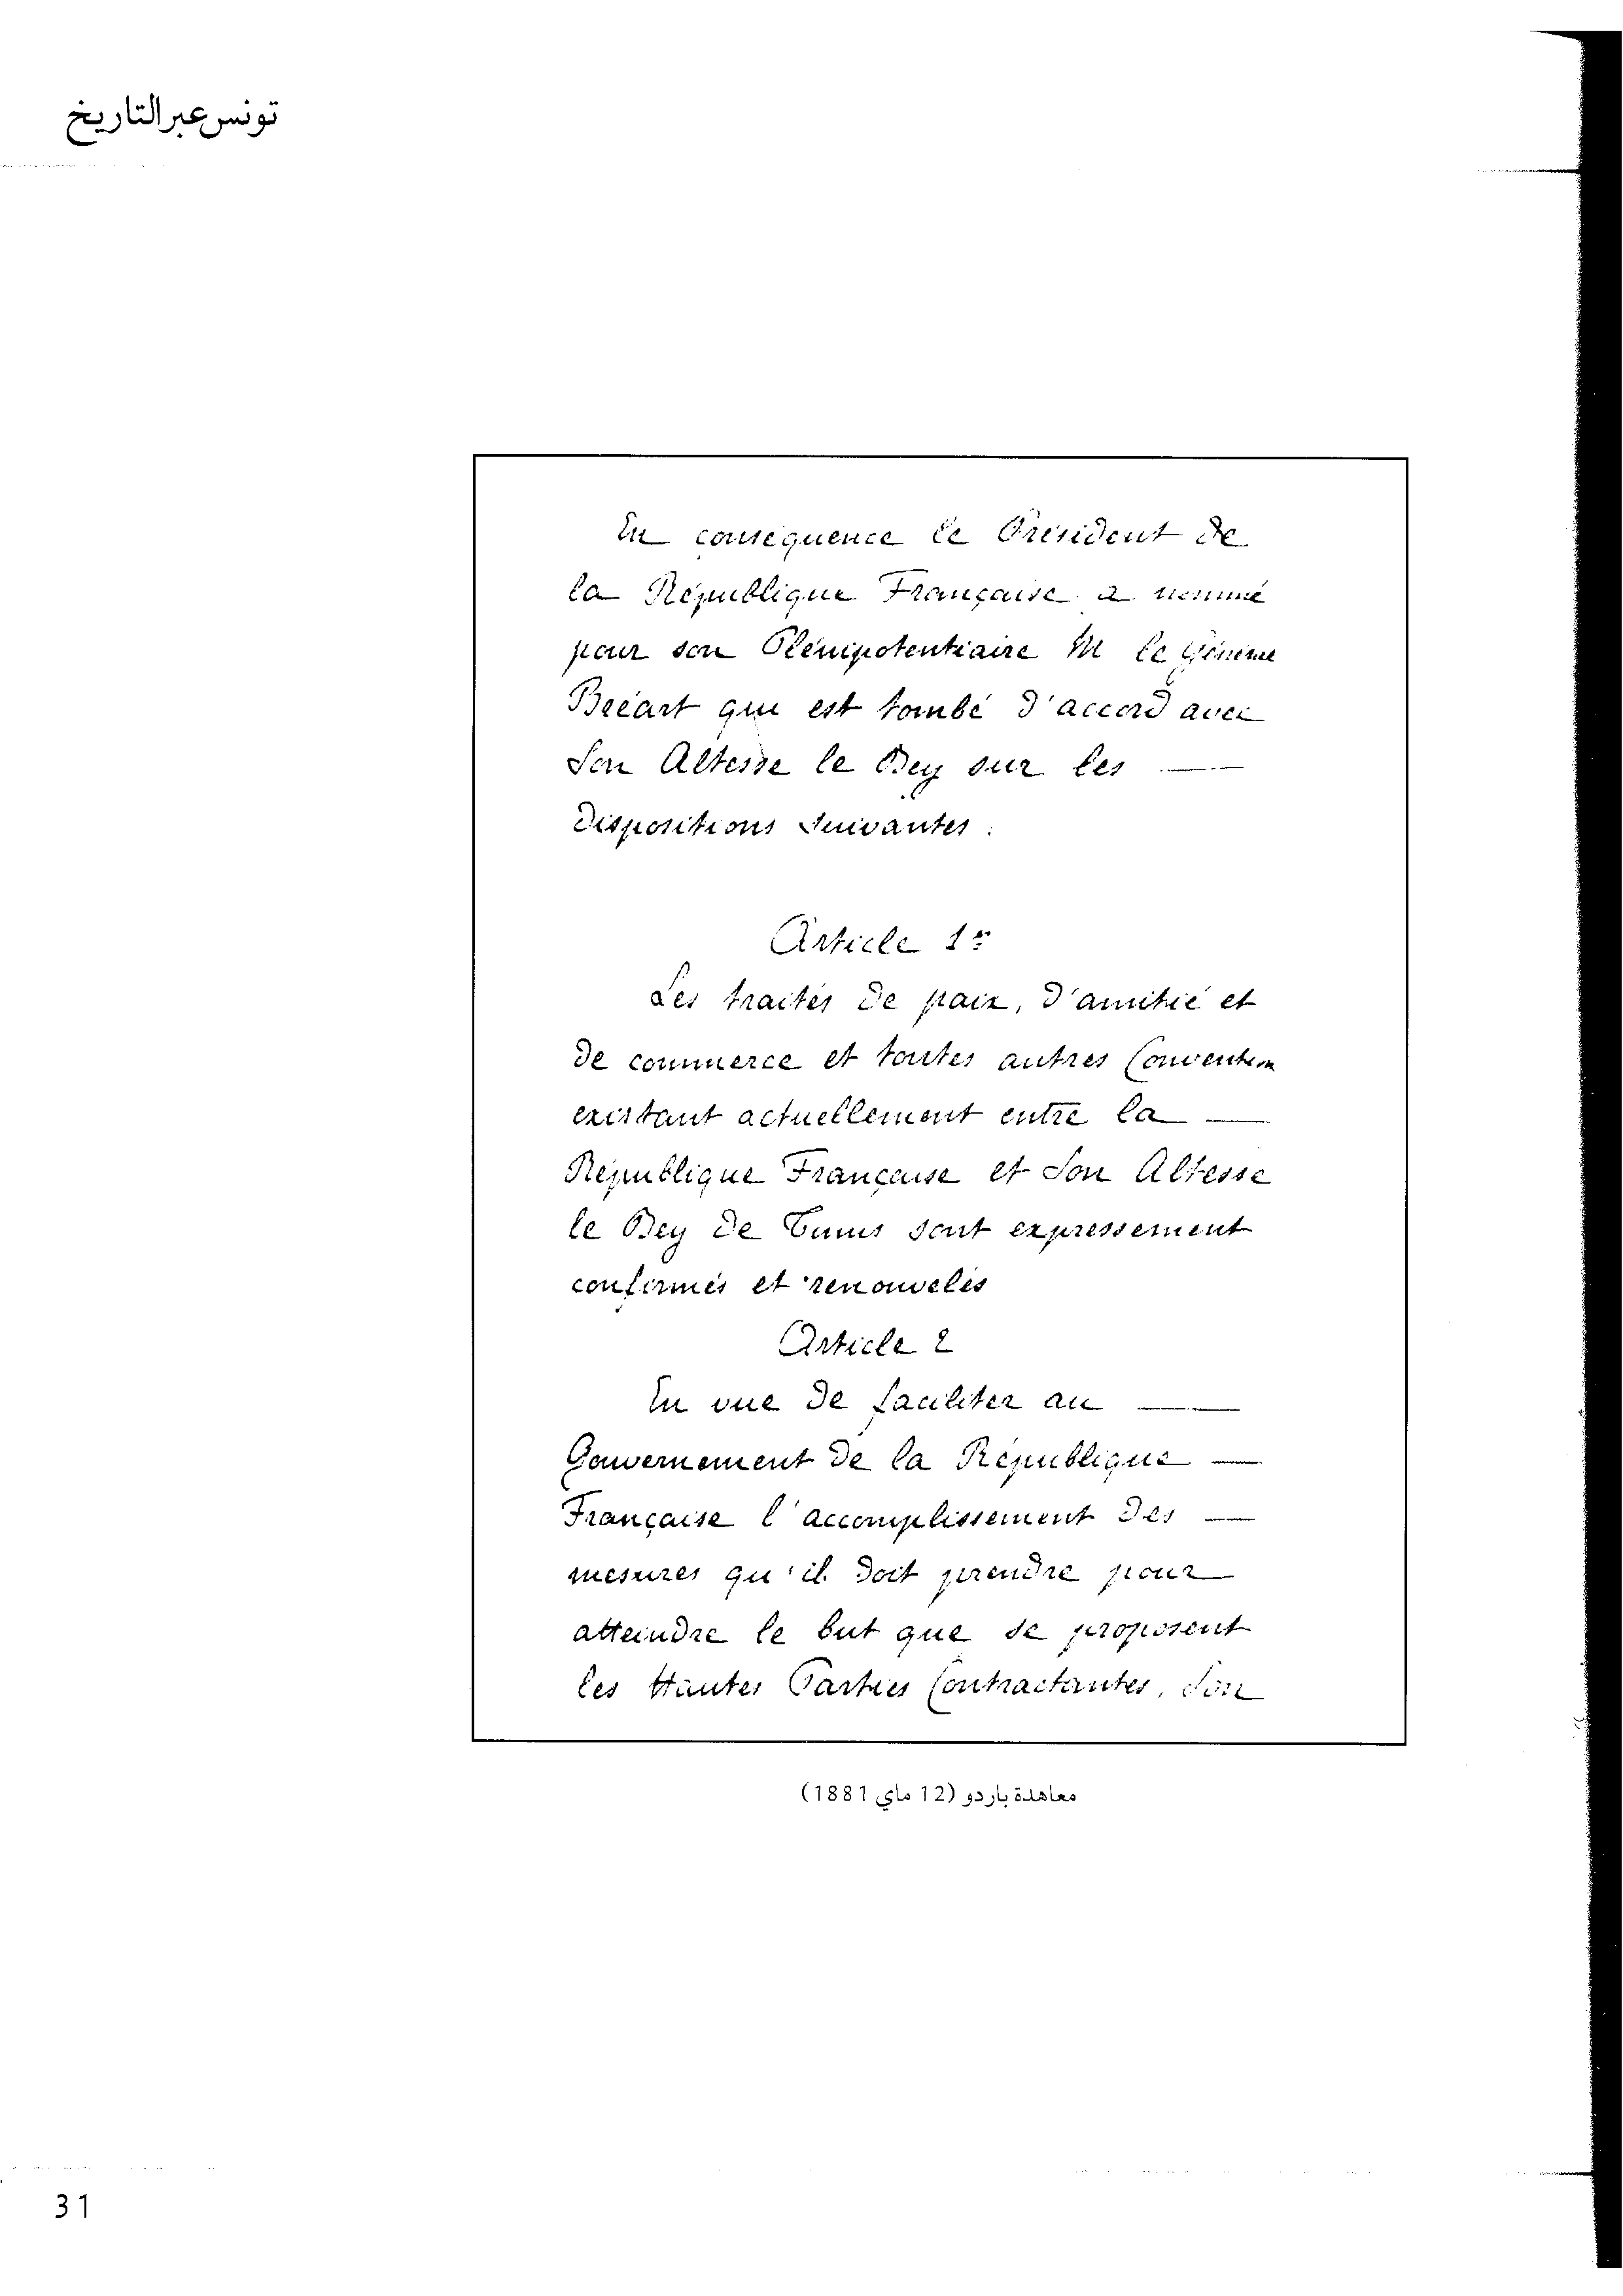 تونس عبر التاريخ
En conséquence le Président de
la République Française a nommé
pour son Plénipotentiaire M le Général
Bréart qui est tombé d'accord avec
Son Altesse le Bey sur les
dispositions suivantes :
Article 1er
Les traités de paix, d'amitié et
de commerce et toutes autres Convention
existant actuellement entre la
République Française et Son Altesse
le Bey de Tunis sont expressement
confirmés et renouvelés
Article 2
En vue de faciliter au
Gouvernement de la République
Française l'accomplissement des
mesures qu'il doit prendre pour
atteindre le but que se proposent
les Hautes Parties Contractantes, Son
معاهدة باردو (12 ماي 1881)
31